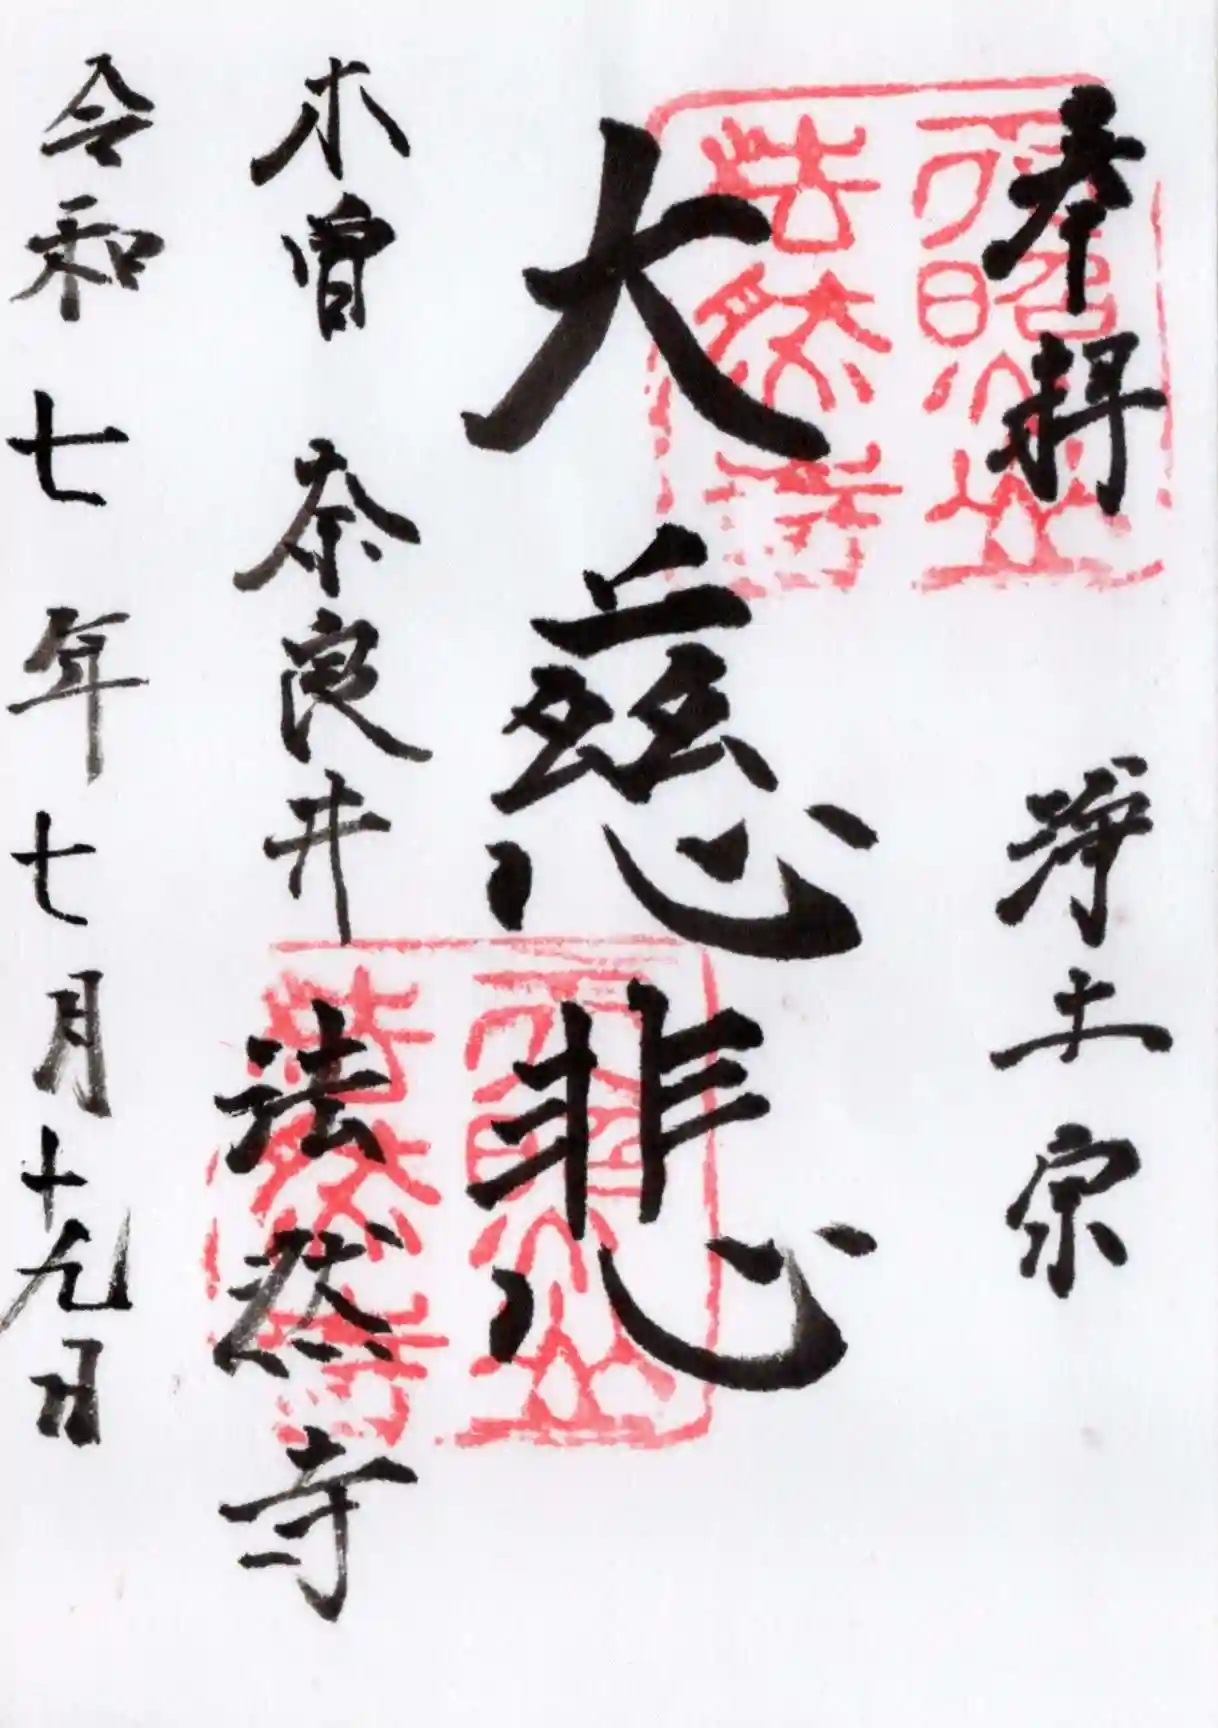 奉拝
浄土宗
大慈悲
木曽 奈良井
法然寺
令和七年七月十九日
法然寺